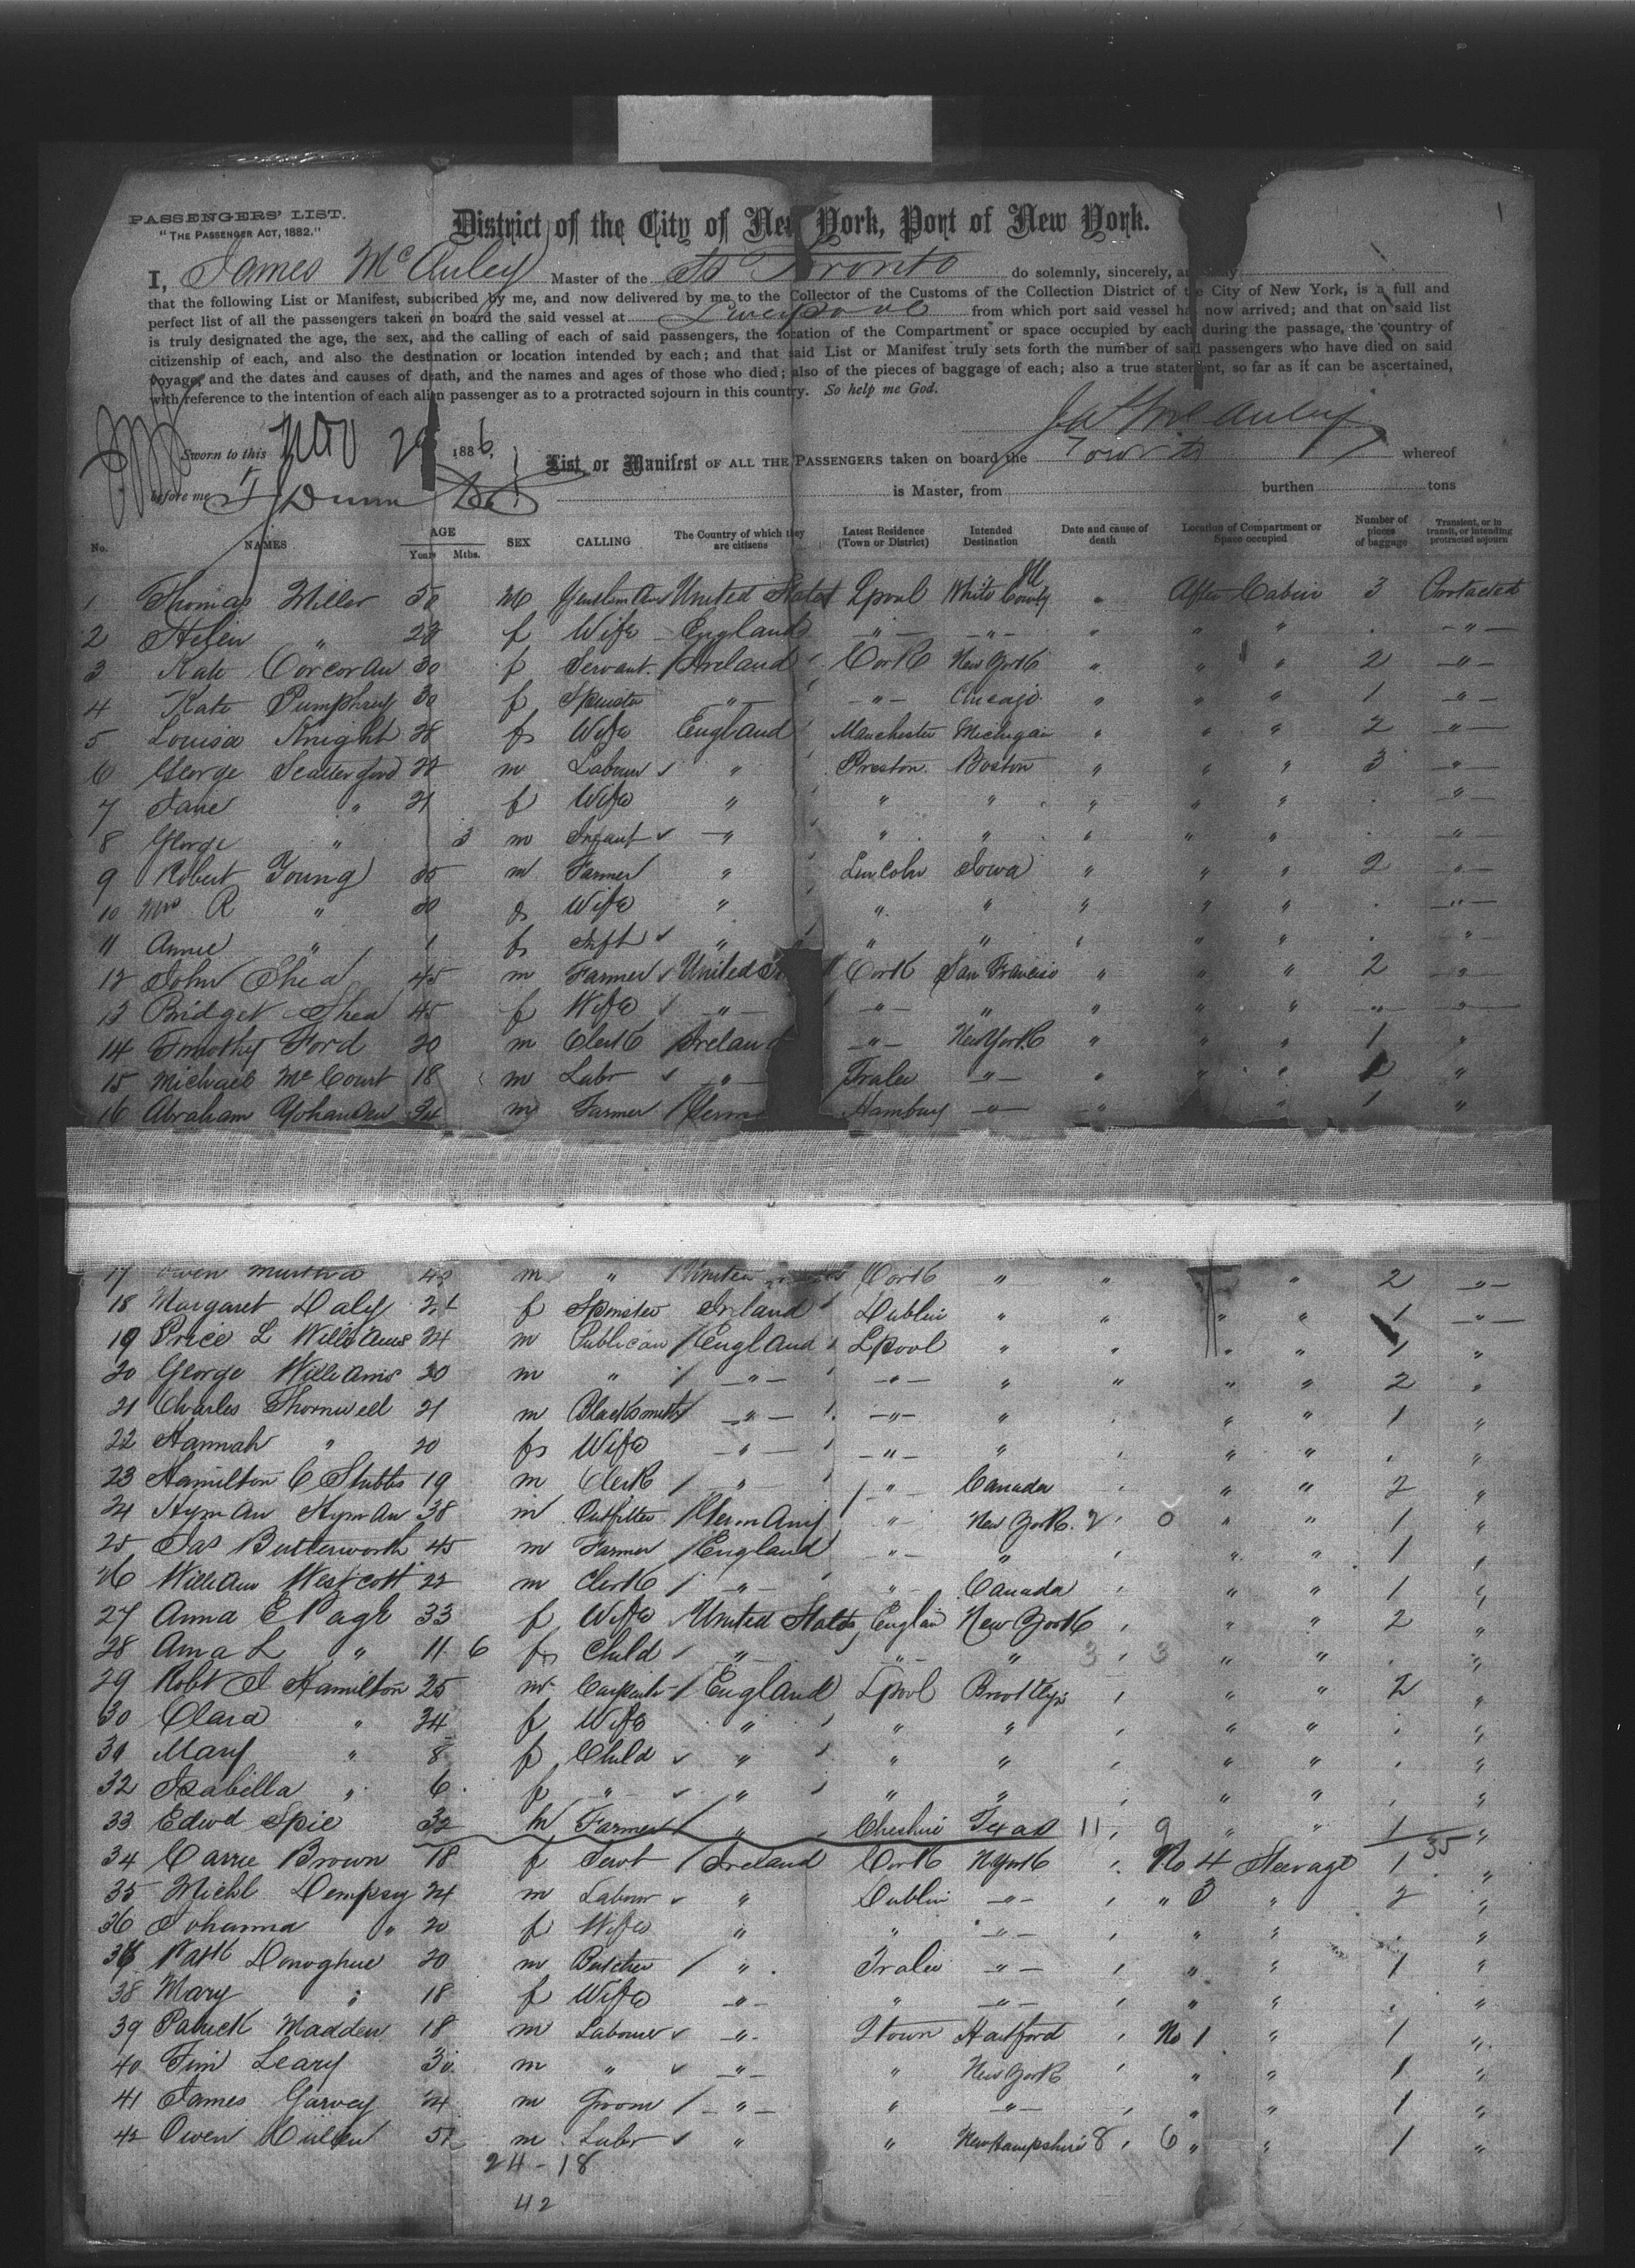 1
PASSENGERS' LIST.
"THE PASSENGER ACT, 1882."
District of the City of New York, Port of New York.
I, James McAuley Master of the SS Toronto do solemnly, sincerely, and
that the following List or Manifest, subscribed by me, and now delivered by me to the Collector of the Customs of the Collection District of the City of New York, is a full and
perfect list of all the passengers taken on board the said vessel at Liverpool from which port said vessel has now arrived; and that on said list
is truly designated the age, the sex, and the calling of each of said passengers, the location of the Compartment or space occupied by each during the passage, the country of
citizenship of each, and also the destination or location intended by each; and that said List or Manifest truly sets forth the number of said passengers who have died on said
voyage, and the dates and causes of death, and the names and ages of those who died; also of the pieces of baggage of each; also a true statement, so far as it can be ascertained,
with reference to the intention of each alien passenger as to a protracted sojourn in this country. So help me God.
Jas McAuley
Sworn to this Nov 1886,
List or Manifest OF ALL THE PASSENGERS taken on board the Toronto whereof
before me Dunn
is Master, from burthen tons
No. NAMES AGE Years Mths. SEX CALLING The Country of which they are citizens Latest Residence (Town or District) Intended Destination Date and cause of death Location of Compartment or Space occupied Number of pieces of baggage Transient, or in transit, or intending protracted sojourn
1 Thomas Miller 50 M Gentleman United States Lpool White County Ill " After Cabin 3 Protracted
2 Helen " 28 f Wife England " " " " " "
3 Kate Corcoran 30 f Servant Ireland Cork New York " " " 2 "
4 Kate Pumphrey 30 f Spinster " " Chicago " " " 1 "
5 Louisa Knight 28 f Wife England Manchester Michigan " " " 2 "
6 George 28 m Labour " Preston Boston " " " 3 "
7 Jane " 21 f Wife " " " " " " "
8 George " 3 m Infant " " " " " " "
9 Robert Young 35 m Farmer " Lincoln Iowa " " " 2 "
10 Mrs R " 30 f Wife " " " " " " "
11 Annie " 1 f Inft " " " " " " "
12 John Shea 45 m Farmer United Cork San Francisco " " " 2 "
13 Bridget Shea 45 f Wife " " " " " " " "
14 Timothy Ford 20 m Clerk Ireland " New York " " " 1 "
15 Michael McCourt 18 m Labr " Tralee " " " " 1 "
16 Abraham Yohanden 34 m Farmer Germ Hamburg " " " 1 "
17 Owen 42 m " United Cork " " " 2 "
18 Margaret Daly 21 f Spinster Ireland Dublin " " " " 1 "
19 Price L Williams 24 m Publican England Lpool " " " " 1 "
20 George Williams 20 m " " " " " " " 2 "
21 Charles Thornwell 21 m Blacksmith " " " " " 1 "
22 Hannah " 20 f Wife " " " " " "
23 Hamilton C Stubbs 19 m Clerk " " Canada " " 2 "
24 Hyman Hyman 38 m Outfitter Germany " New York 2 0 " " 1 "
25 Jas Butterworth 45 m Farmer England " " " " 1 "
26 William Westcott 22 m Clerk " " Canada " " 1 "
27 Anna E Page 33 f Wife United States England New York " " 2 "
28 Anna L " 11 6 f Child " " " 3 3 " " "
29 Robt J Hamilton 25 m Carpenter England Lpool Brooklyn " " 2 "
30 Clara " 34 f Wife " " " " " "
31 Mary " 8 f Child " " " " " "
32 Isabella " 6 f " " " " " " "
33 Edwd Spie 32 m Farmer " Cheshire Texas 11 9 " " 1 "
35
34 Carrie Brown 18 f Servt Ireland Cork N York No 4 Steerage 1 "
35 Michl Dempsey 24 m Labour " Dublin " " 3 " 2 "
36 Johanna " 20 f Wife " " " " " "
37 Patk Donoghue 20 m Butcher " Tralee " " " 1 "
38 Mary " 18 f Wife " " " " " "
39 Patrick Madden 18 m Labourer " Qtown Hartford No 1 " 1 "
40 Tim Leary 30 m " " " New York " " 1 "
41 James Garvey 24 m Groom " " " " " 1 "
42 Owen Cullen 51 m Labr " " New Hampshire 8 6 " " 1 "
24 - 18
42